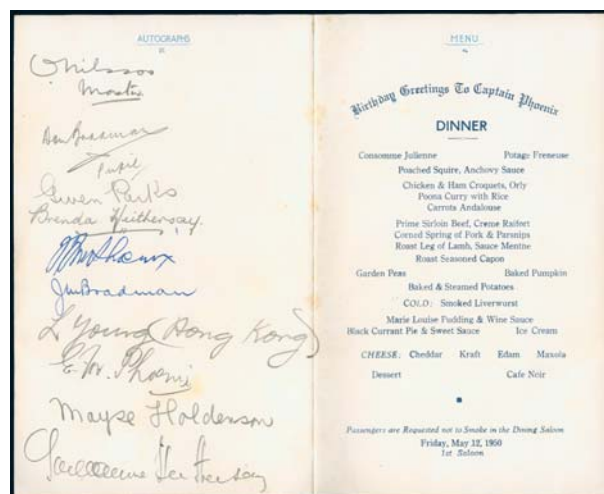 AUTOGRAPHS
Master
Don Bradman
Pupil
Gwen Parks
Brenda
Phoenix
Jim Bradman
L Young (Hong Kong)
E. W. Phoenix
Mayse Holdenson
MENU
Birthday Greetings To Captain Phoenix
DINNER
Consomme Julienne Potage Freneuse
Poached Squire, Anchovy Sauce
Chicken & Ham Croquets, Orly
Poona Curry with Rice
Carrots Andalouse
Prime Sirloin Beef, Creme Raifort
Corned Spring of Pork & Parsnips
Roast Leg of Lamb, Sauce Mentne
Roast Seasoned Capon
Garden Peas Baked Pumpkin
Baked & Steamed Potatoes
COLD: Smoked Liverwurst
Marie Louise Pudding & Wine Sauce
Black Currant Pie & Sweet Sauce Ice Cream
CHEESE: Cheddar Kraft Edam Maxola
Dessert Cafe Noir
Passengers are Requested not to Smoke in the Dining Saloon
Friday, May 12, 1950
1st Saloon